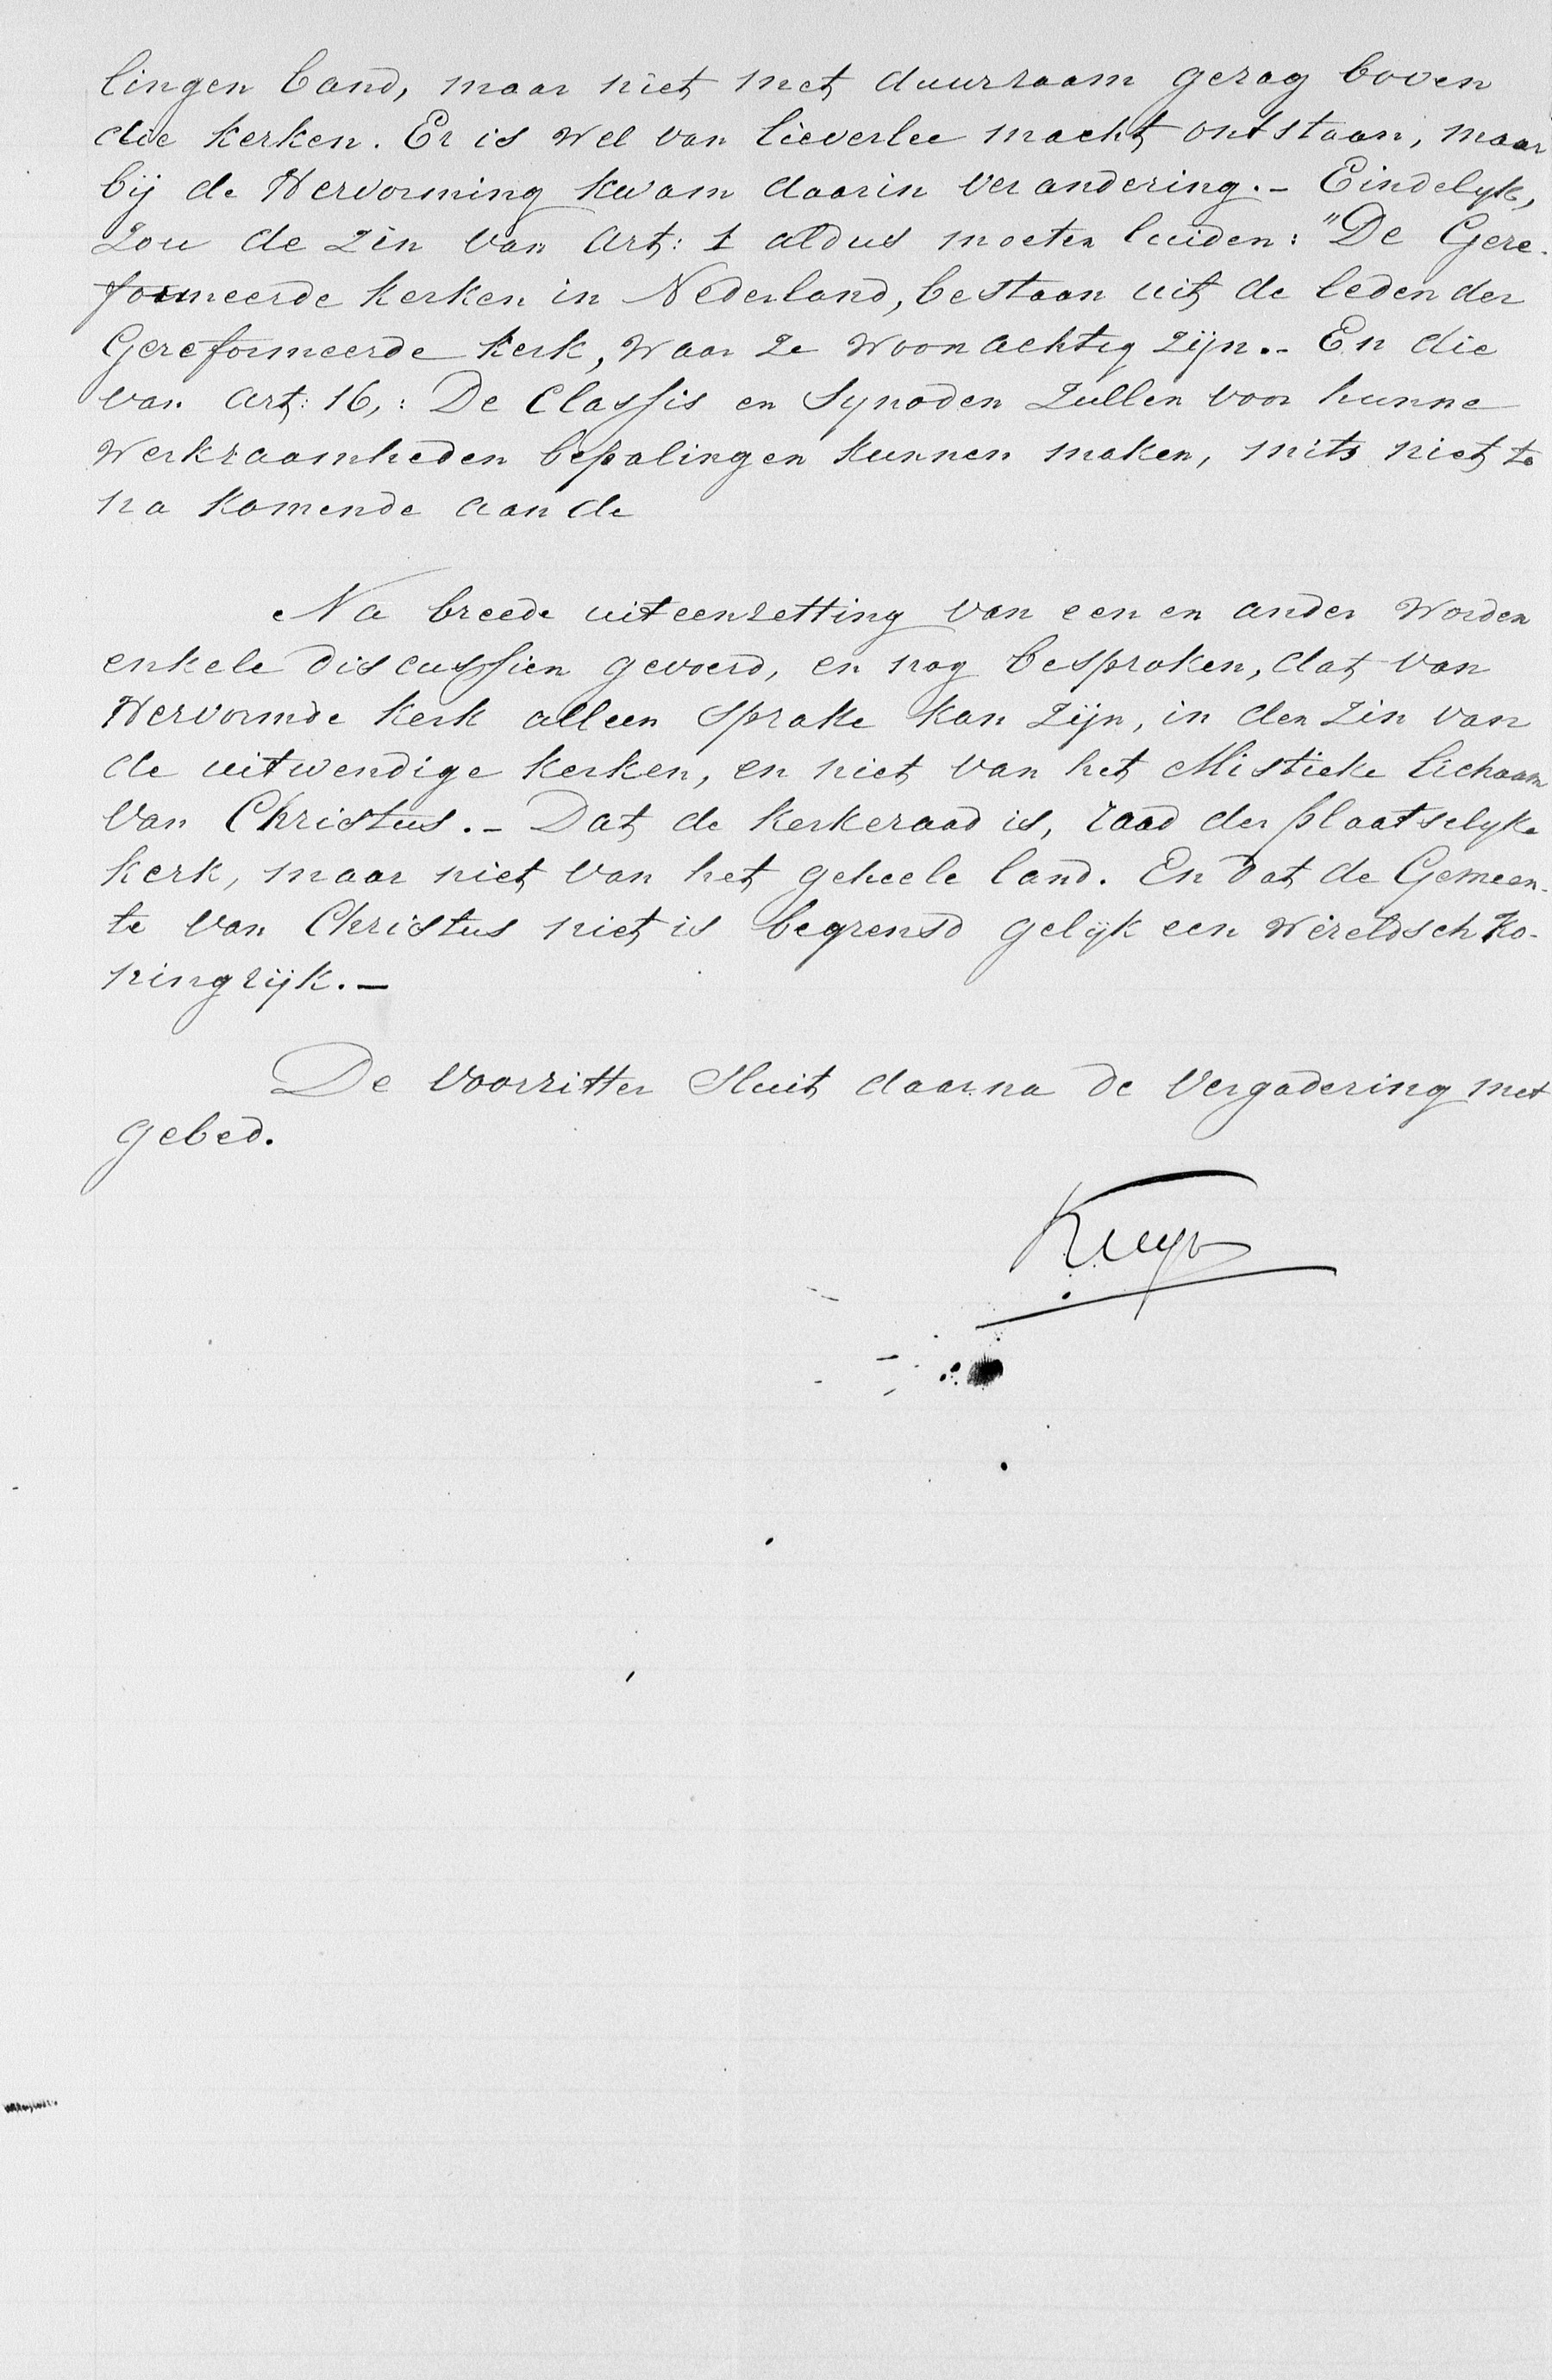 lingen band, maar niet met duurzaam gezag boven
die kerken. Er is wel van lieverlee macht ontstaan, maar
bij de Hervorming kwam daarin verandering. - Eindelyk,
zou de zin van Art: 1 aldus moeten luiden: "De Gere-
formeerde kerken in Nederland, bestaan uit de leden der
Gereformeerde kerk, waar ze woonachtig zijn. - En die
van Art: 16,: De Classis en Synoden zullen voor hunne
werkzaamheden bepalingen kunnen maken, mits niet te
na komende aan de
Na breede uiteenzetting van een en ander worden
enkele discussien gevoerd, en nog besproken, dat van
Hervormde kerk alleen sprake kan zijn, in den zin van
de uitwendige kerken, en niet van het Mistieke lichaam
van Christus. - Dat de kerkeraad is, raad der plaatselyke
kerk, maar niet van het geheele land. En dat de Gemeen-
te van Christus niet is begrensd gelijk een wereldsch ko-
ningrijk. -
De voorzitter sluit daarna de vergadering met
gebed.